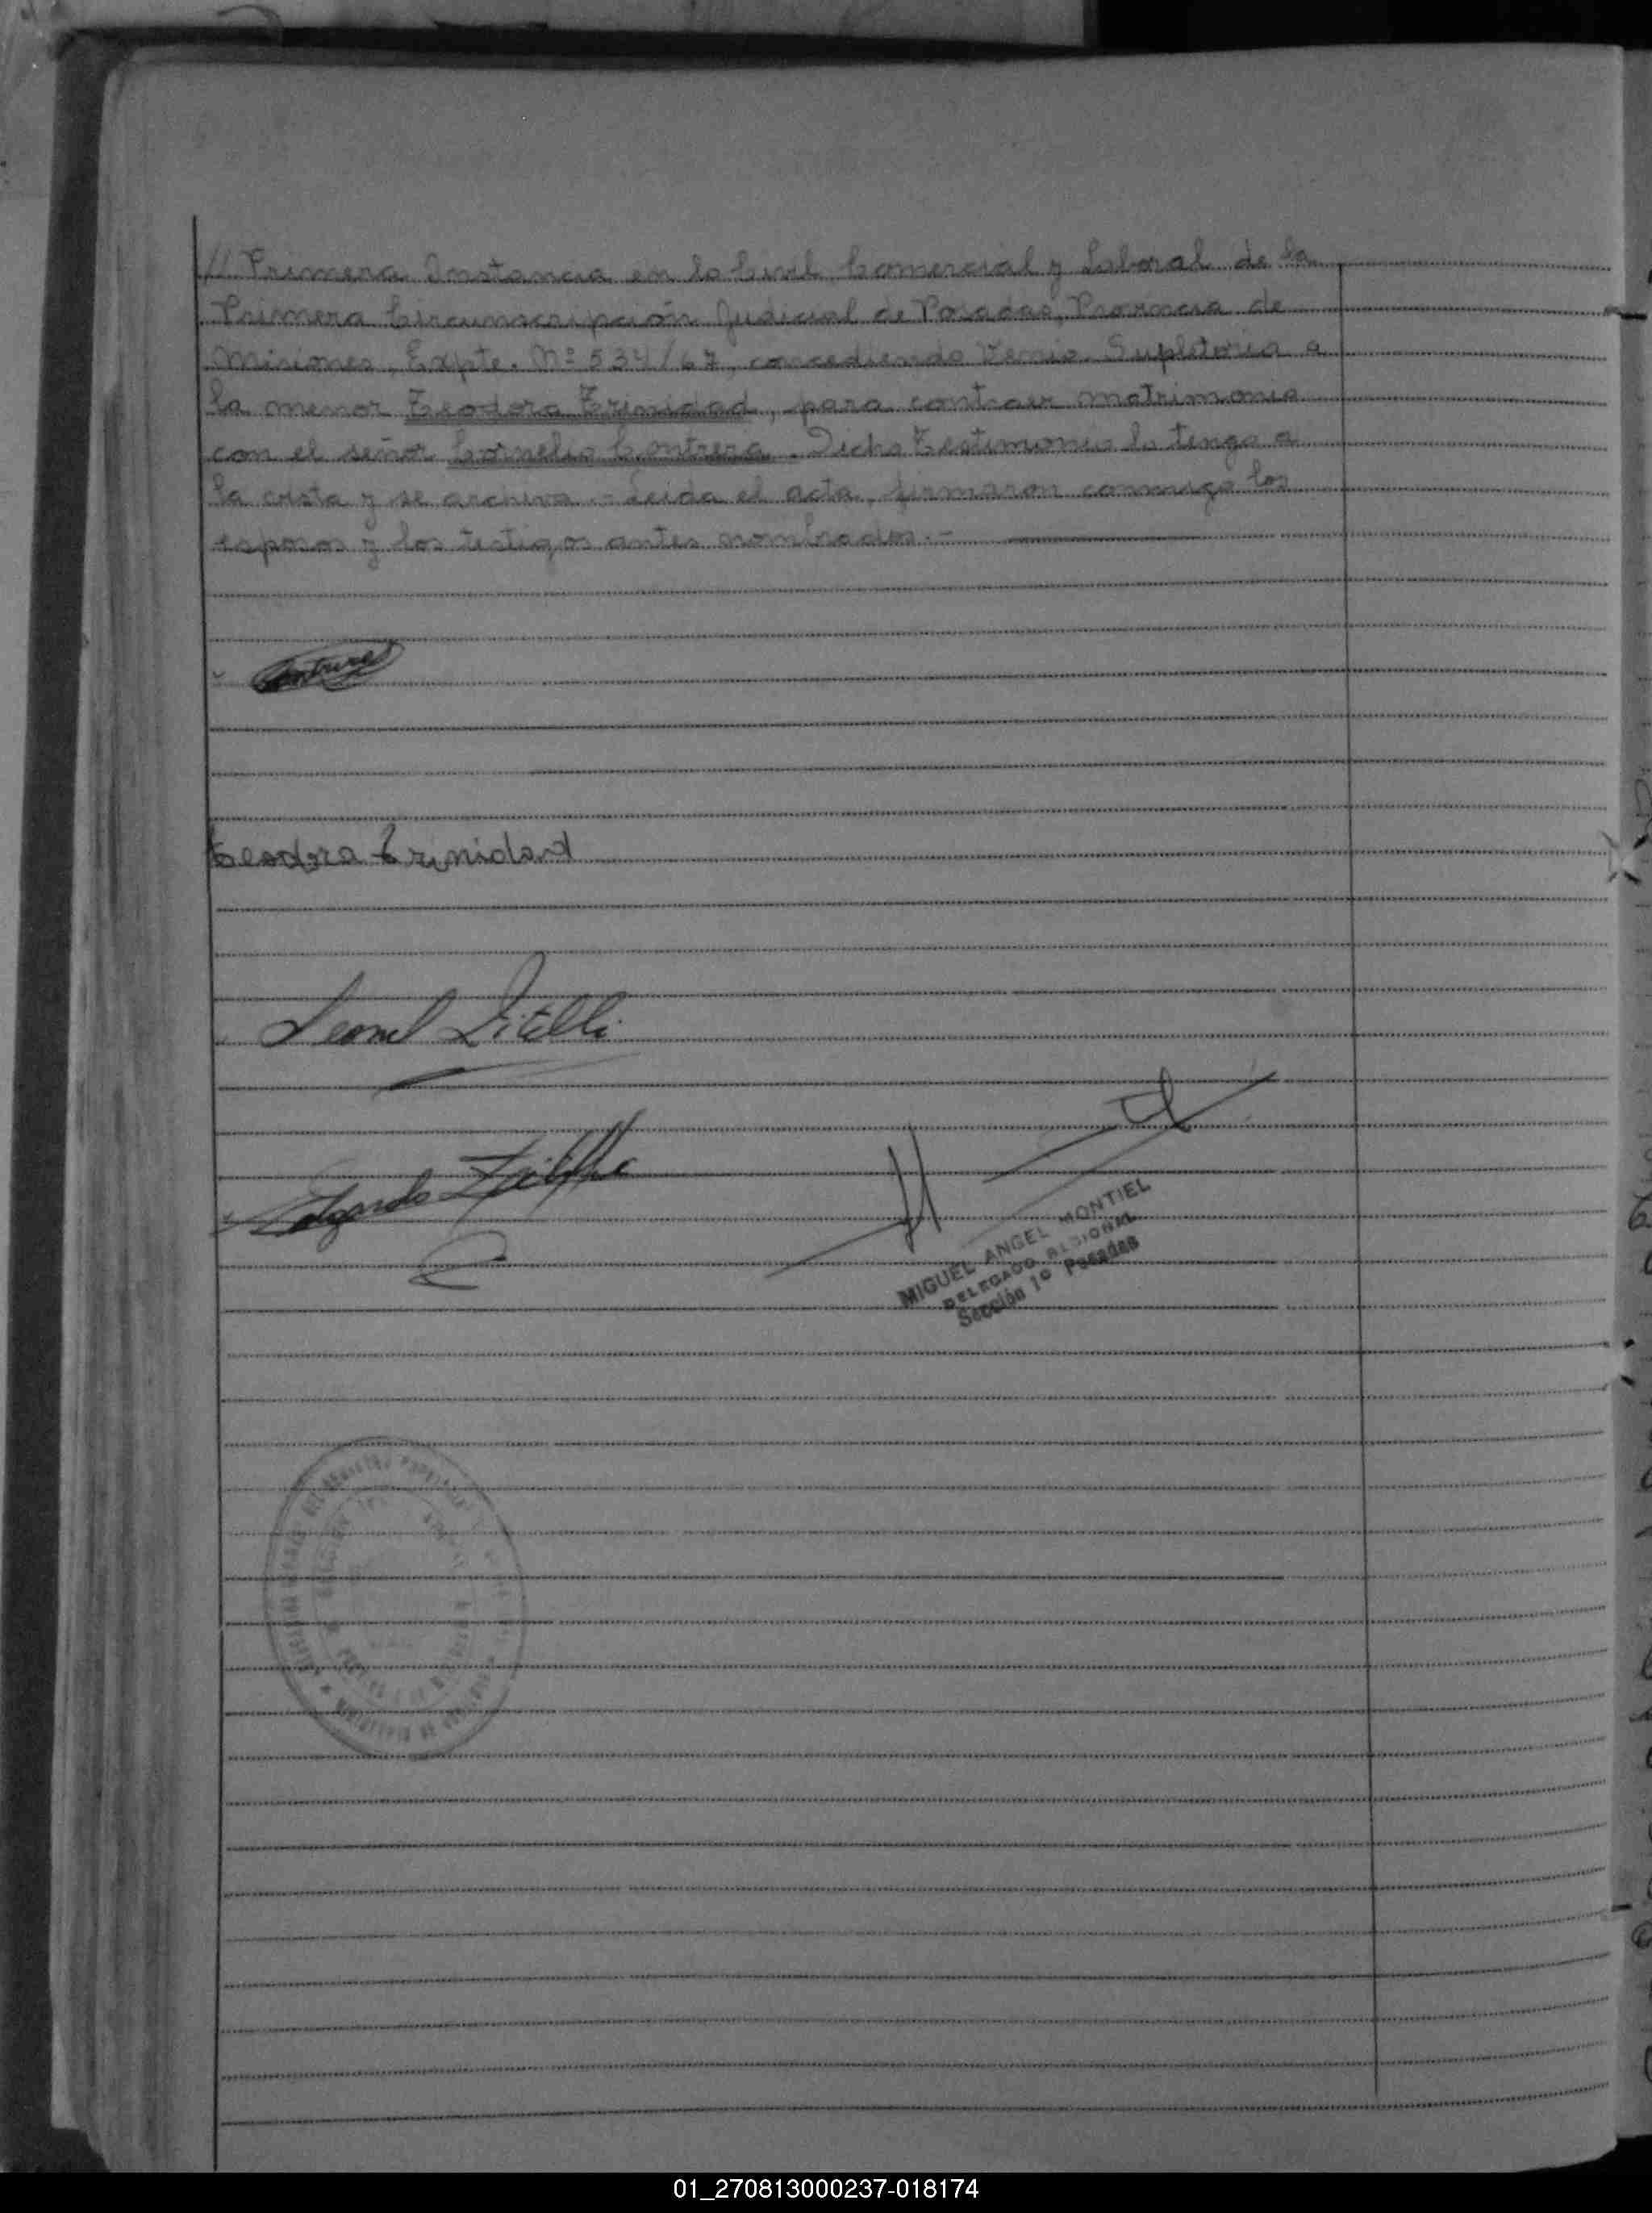 // Primera Instancia en lo Civil Comercial y Laboral de la
Primera Circunscripción Judicial de Posadas, Provincia de
Misiones, Expte. Nº 534/67, concediendo Venia Supletoria a
la menor Teodora Trinidad, para contraer matrimonio
con el señor Cornelio Contrera. Dicho Testimonio lo tengo a
la vista y se archiva.- Leida el acta, firmaron conmigo los
esposos y los testigos antes nombrados.-
Teodora Trinidad
Leonel
Edgardo
MIGUEL ANGEL MONTIEL
DELEGADO REGIONAL
Sección 1º Posadas
01_270813000237-018174